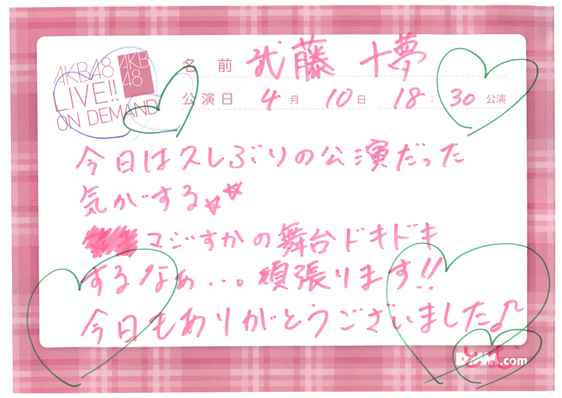 AKB48 AKB48
LIVE!!
ON DEMAND
名前 武藤 十夢
公演日 4月 10日 18:30 公演
今日は久しぶりの公演だった
気がする☆☆
マジすかの舞台ドキドキ
するなぁ...。頑張ります!!
今日もありがとうございました♪
DMM.com